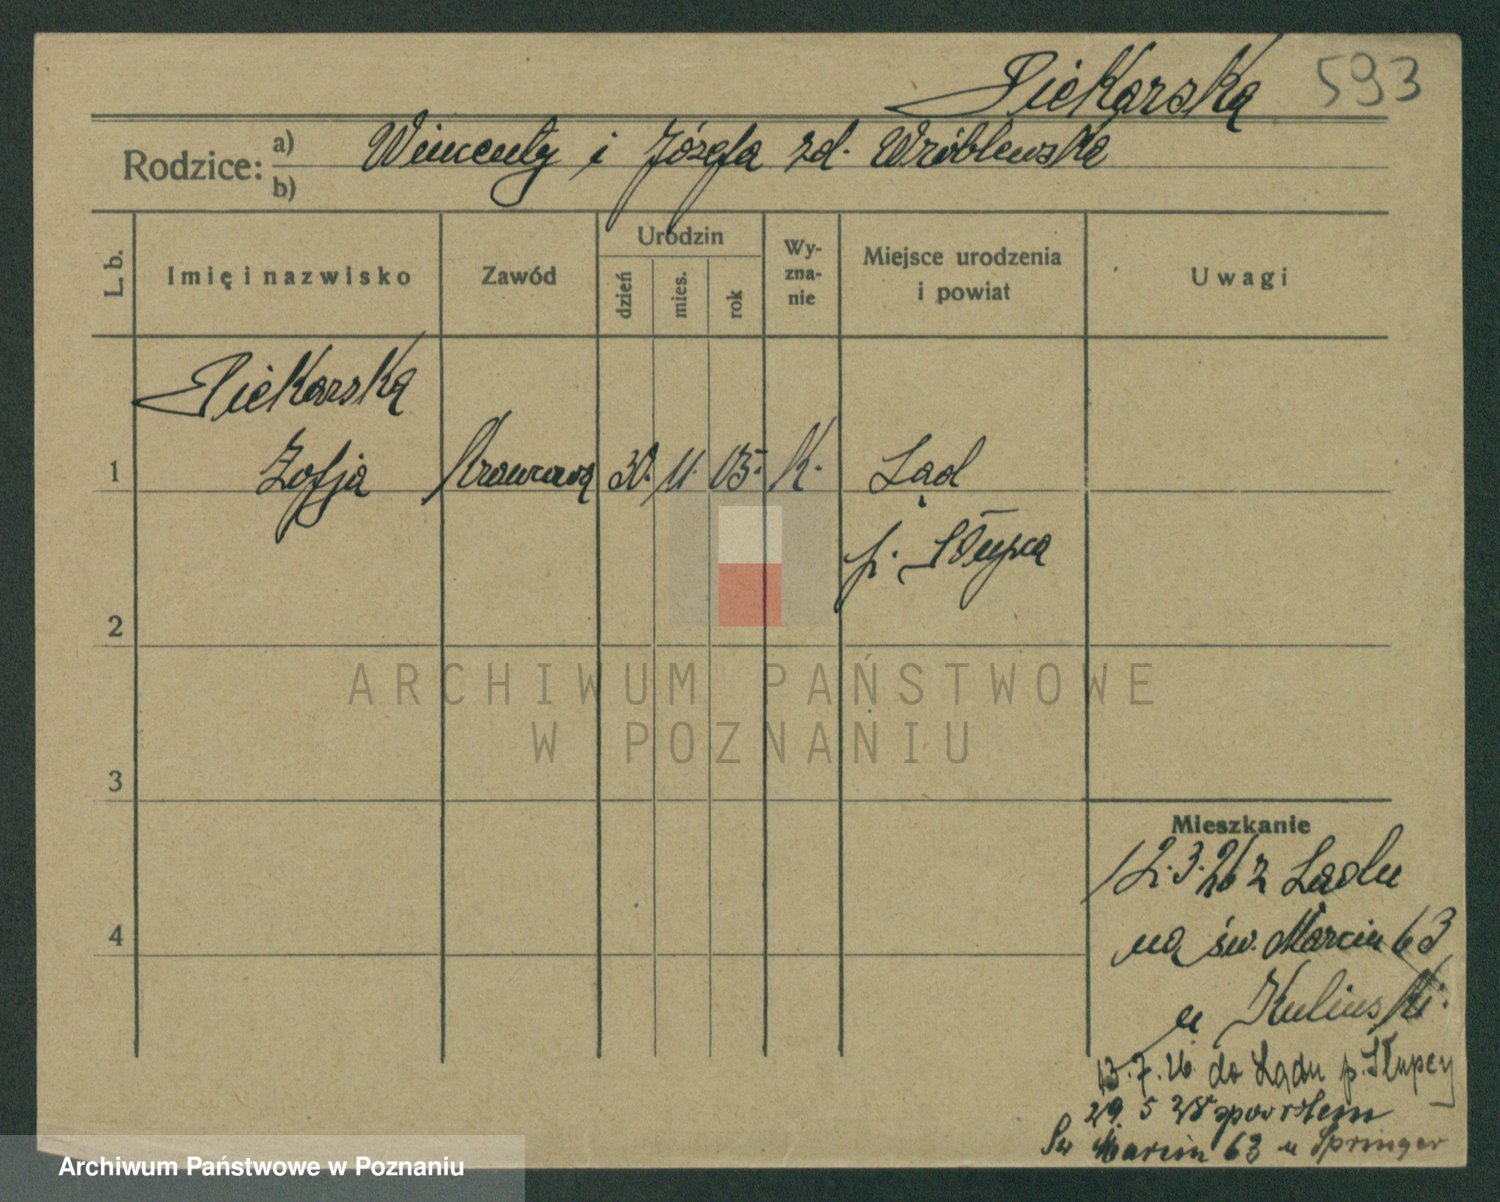 Piekarska 593
Rodzice: a) b) Wincenty i Józefa zd. Wróblewska
L. b. Imię i nazwisko Zawód Urodzin dzień mies. rok Wy-zna-nie Miejsce urodzenia i powiat Uwagi
Piekarska
1 Zofja Krawcowa 30. 11. 05. K. Ląd
p. Słupca
2
ARCHIWUM PAŃSTWOWE
W POZNANIU
3
Mieszkanie
12.3.26 z Lądu
4 na św. Marcin 63
u
13.7.26 do Lądu p. Słupcy
29 5 28 powrotem
Św Marcin 63 u Springer
Archiwum Państwowe w Poznaniu